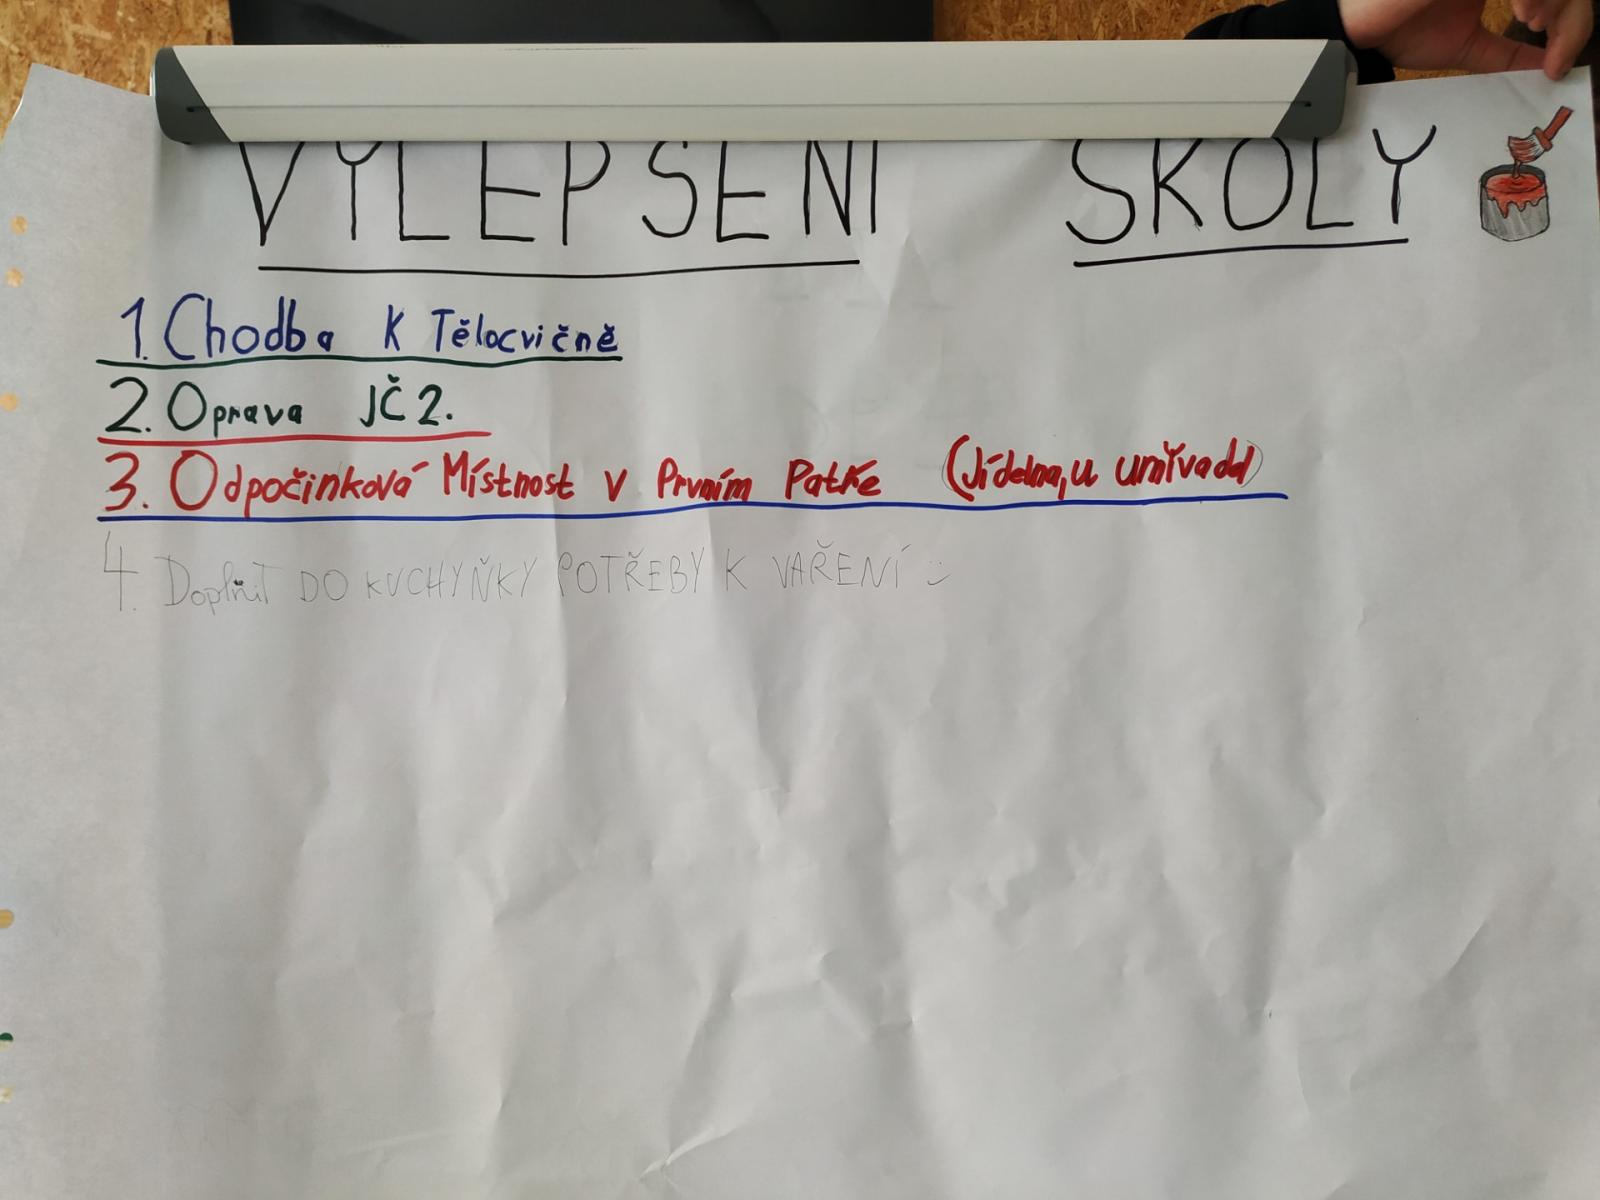 VYLEPŠENÍ ŠKOLY
1. Chodba K Tělocvičně
2. Oprava JČ 2.
3. Odpočinková Místnost v Prvním Patře (Jídelna, u umývadel)
4. Doplňit DO KUCHYŇKY POTŘEBY K VAŘENÍ